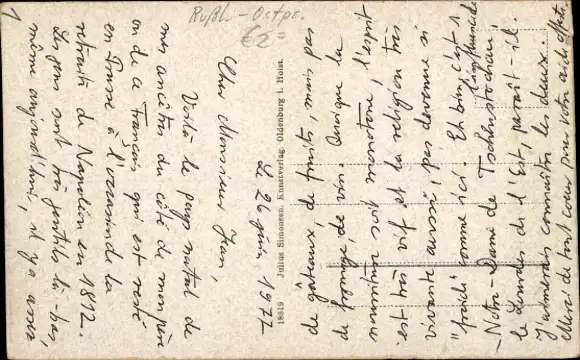 Rußl. - Ostpr.
€2=
1
Le 26 juin 1977
Cher Monsieur Jean,
Voilà le pays natal de
mes ancêtres du côté de mon père
ou de ce français qui est resté
en Prusse à l'occasion de la
retraite de Napoléon en 1812.
Les gens sont très gentils là-bas,
même aujourd'hui, il y a assez
18619 Julius Simonsen, Kunstverlag, Oldenburg i. Holst.
de gâteaux de fruits, mais pas
de fromage, de vin. Quoique la
nourriture soit monotone, l'esprit
est très vif et la religion très
vivante aussi, pas devenue si
"froide" comme ici. Eh bien, c'est
- Notre-Dame de Tschenstochau
le Lourdes de l'Est, paraît-il.
J'aimerais connaître les deux.
Merci de tout cœur pour votre